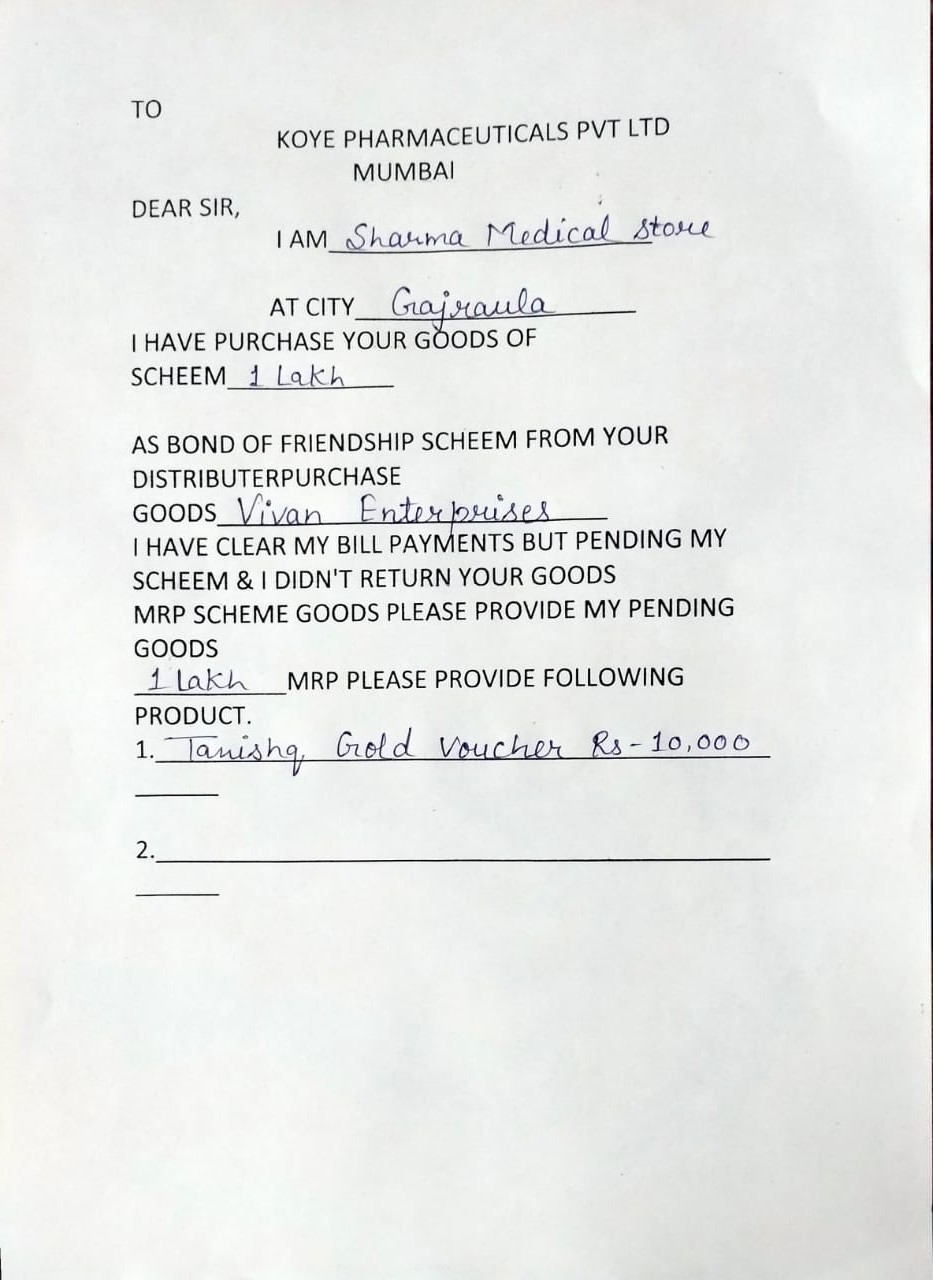 TO
KOYE PHARMACEUTICALS PVT LTD
MUMBAI
DEAR SIR,
I AM Sharma Medical Store
AT CITY Gajraula
I HAVE PURCHASE YOUR GOODS OF
SCHEEM 1 Lakh
AS BOND OF FRIENDSHIP SCHEEM FROM YOUR
DISTRIBUTERPURCHASE
GOODS Vivan Enterprises
I HAVE CLEAR MY BILL PAYMENTS BUT PENDING MY
SCHEEM & I DIDN'T RETURN YOUR GOODS
MRP SCHEME GOODS PLEASE PROVIDE MY PENDING
GOODS
1 Lakh MRP PLEASE PROVIDE FOLLOWING
PRODUCT.
1. Tanishq Gold Voucher Rs - 10,000
2.